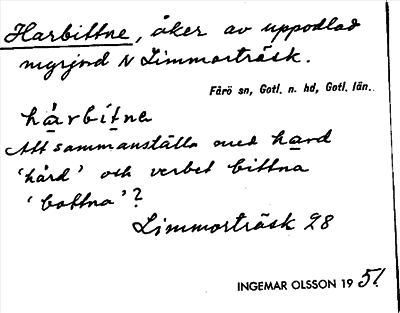 Harbittne, åker av uppodlad
myrjord N Limmorträsk.
Fårö sn, Gotl. n. hd, Gotl. län.
hårbitne
Att sammanställa med hard
'hård' och verbet bittna
'bottna'?
Limmorträsk 28
INGEMAR OLSSON 1951